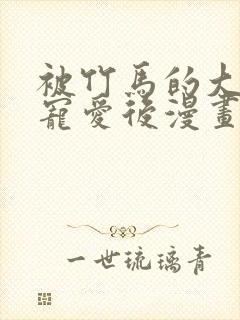 被竹馬的大
寵愛後漫畫
一世琉璃青